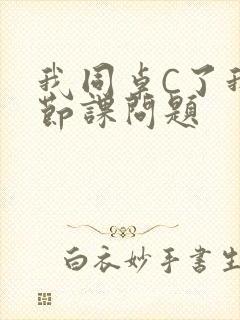 我同桌C了我
节课问题
白衣妙手书生